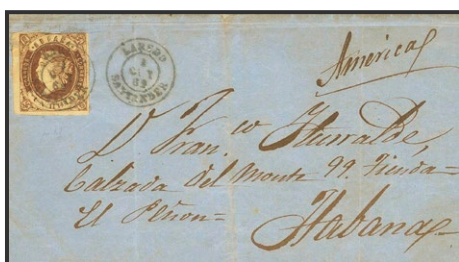 LAREDO
SANTANDER
America
D. Fran.co Iturralde,
Calzada del Monte 99. Tienda=
El Peñon=
Habana